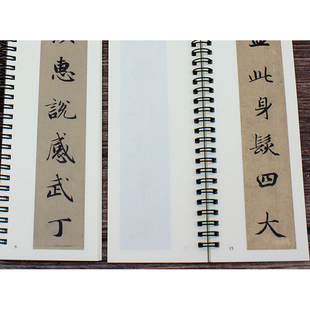 惠說感武丁
此身髮四大
15